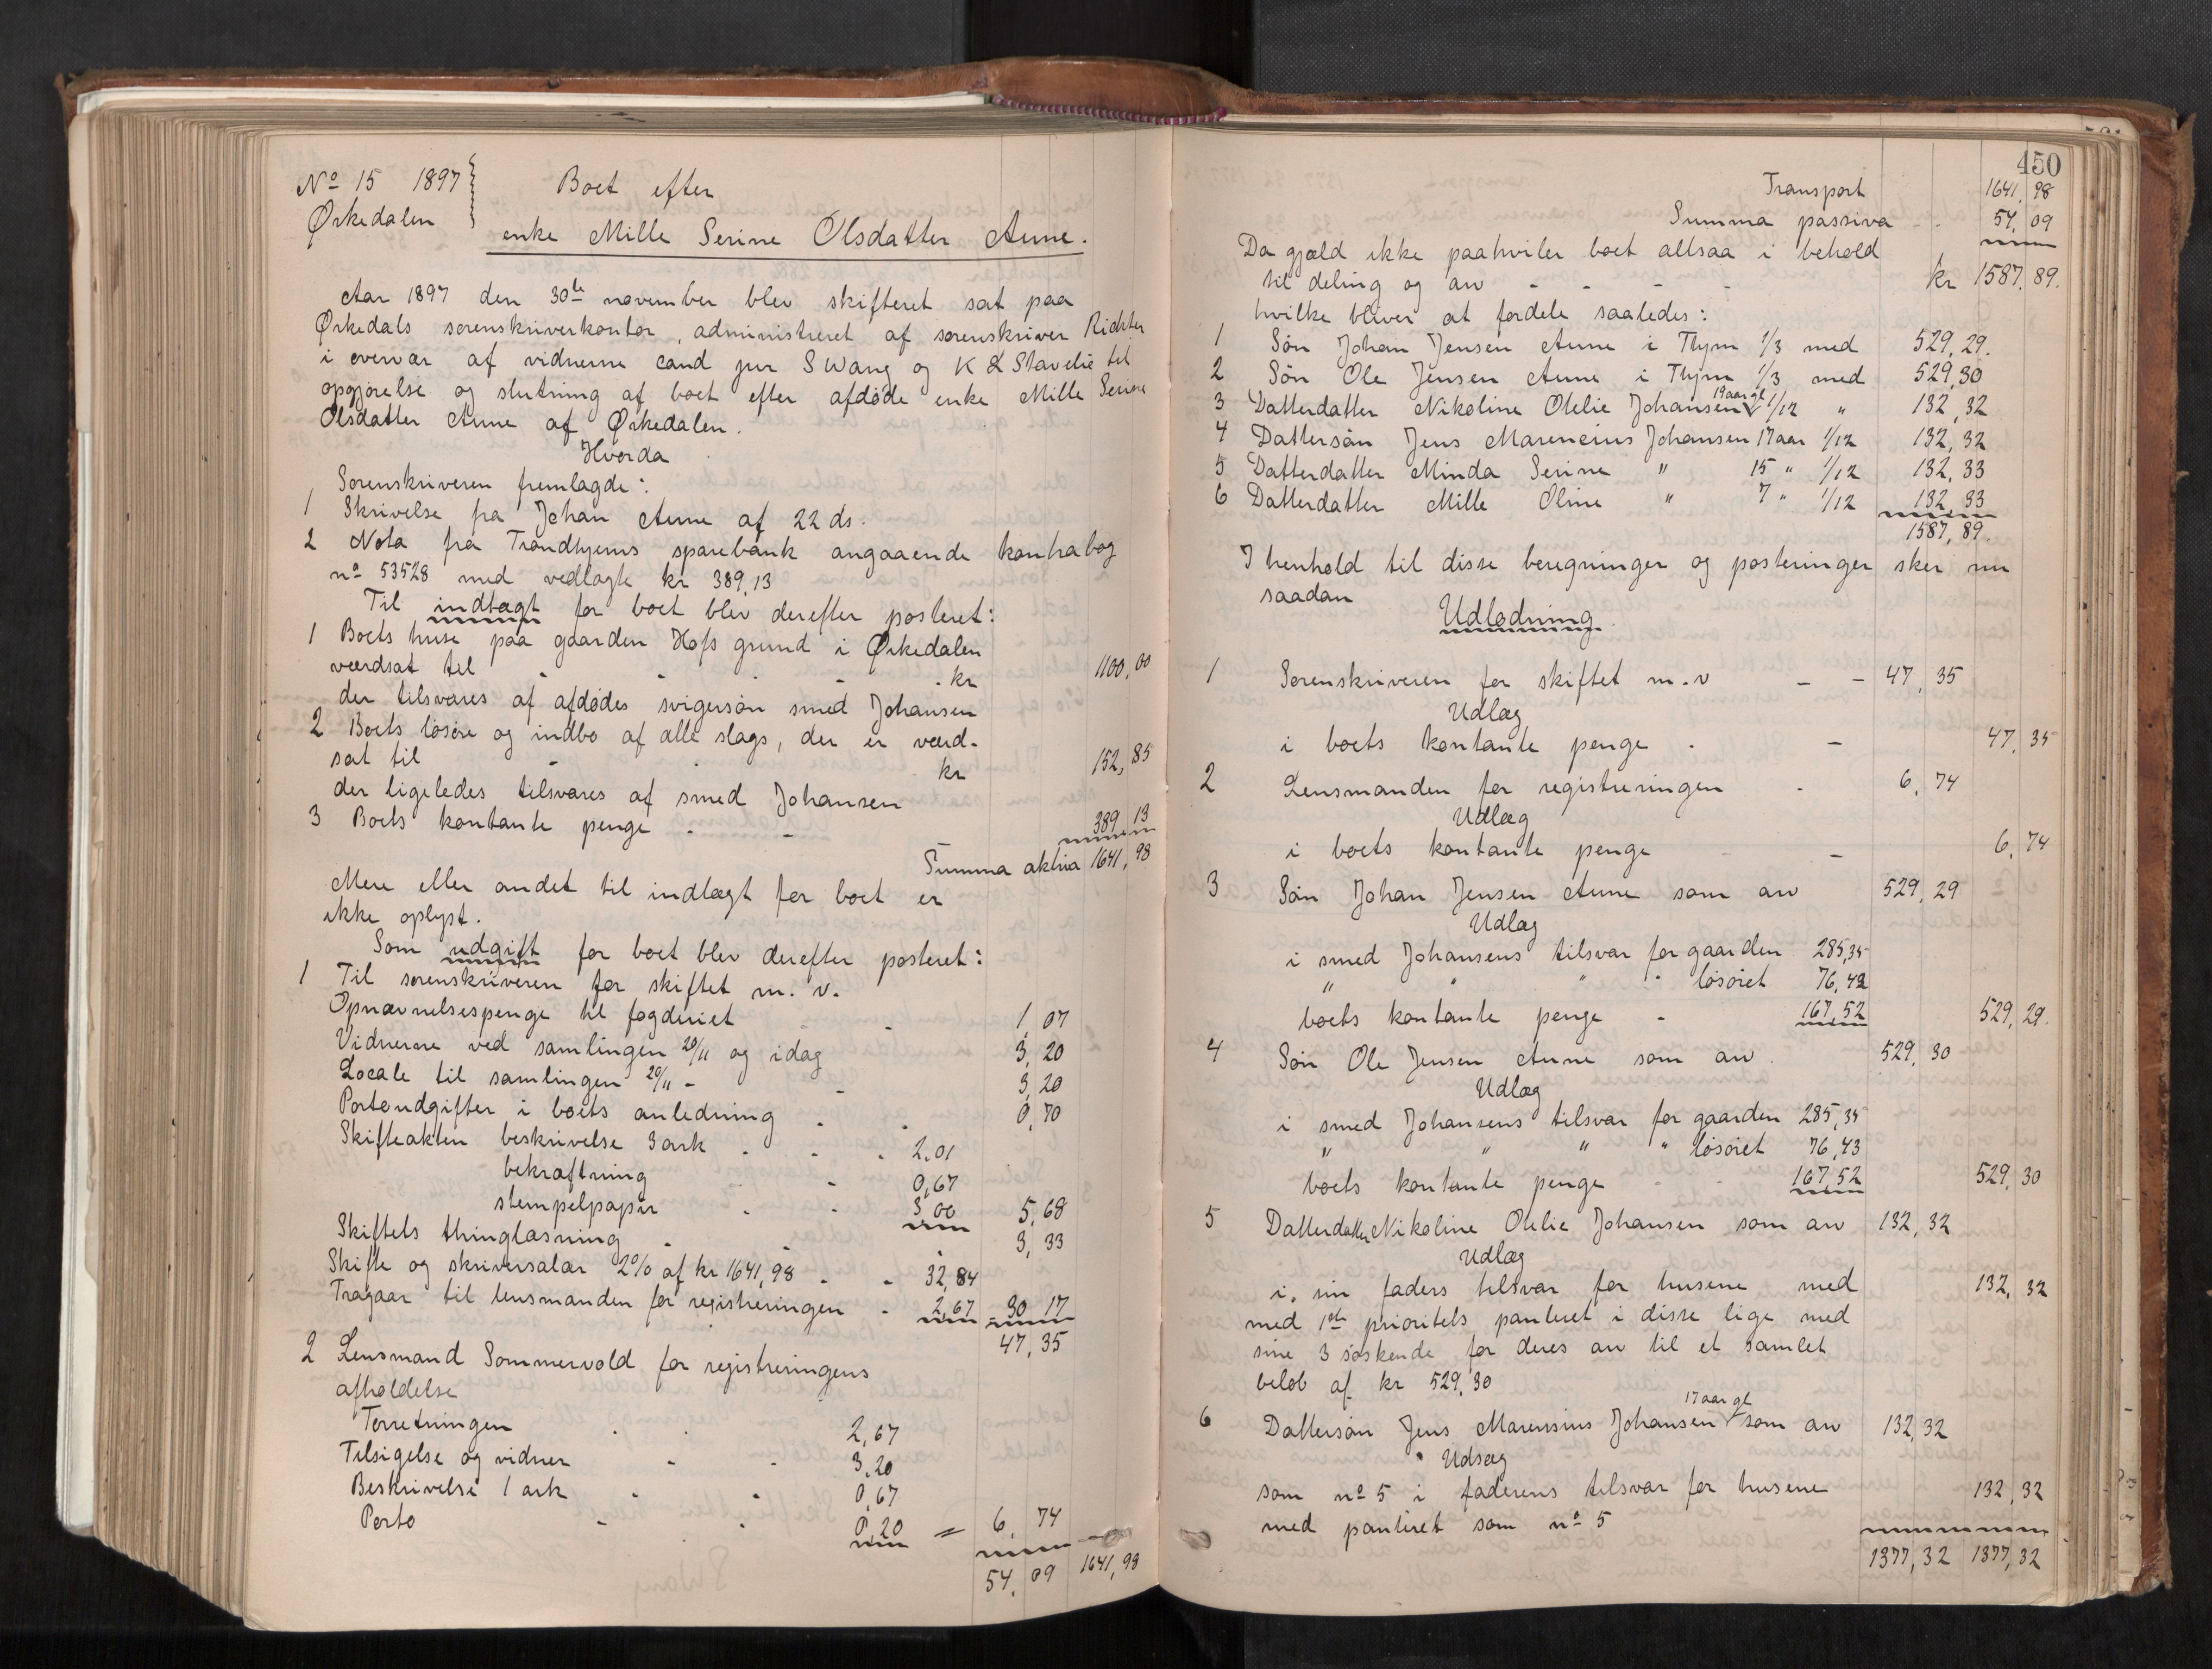 No 15 1897
Ørkedalen
Boet efter
enke Mille Serine Olsdatter Aune.
Aar 1897 den 30te november blev skifteret sat paa
Ørkedals sorenskriverkontor, administreret af sorenskriver Richter
i overvær af vidnerne cand jur S Wang og K L Stavelie til
opgjørelse og slutning af boet efter afdøde enke Mille Serine
Olsdatter Aune af Ørkedalen.
Hvorda
Sorenskriveren fremlagde:
1 Skrivelse fra Johan Aune af 22 ds.
2 Nota fra Trondhjems sparebank angaaende kontrabog
no 53528 med vedlagte kr 389,13
Til indtægt for boet blev derefter posteret:
1 Boets huse paa gaarden Hofs grund i Ørkedalen
værdsat til - - - - kr 1100,00
der tilsvares af afdødes svigersøn smed Johansen
2 Boets løsøre og indbo af alle slags, der er værd-
sat til - - kr 152,85
der ligeledes tilsvares af smed Johansen
3 Boets kontante penge - - 389,13
Summa aktiva 1641,98
Mere eller andet til indtægt for boet er
ikke oplyst.
Som udgift for boet blev derefter posteret:
1 Til sorenskriveren for skiftet m. v.
Opnævnelsespenge til fogderiet - - 1,07
Vidnerne ved samlingen 20/11 og idag 3,20
Locale til samlingen 20/11 - - 3,20
Portoudgifter i boets anledning - - 0,70
Skifteakten beskrivelse 3 ark - - - 2,01
bekræftning - 0,67
stempelpapir - - 3,00 5,68
Skiftets thinglæsning - - - 3,33
Skifte og skriversalær 2% af kr 1641,98 - - 32,84
Fragaar til lensmanden for registreringen - 2,67 30,17
47,35
2 Lensmand Sommervold for registreringens
afholdelse
Forretningen - - 2,67
Tilsigelse og vidner - - 3,20
Beskrivelse 1 ark - - 0,67
Porto - - 0,20 = 6,74
54,09 1641,98
450
Transport 1641,98
Summa passiva - - 54,09
Da gjæld ikke paahviler boet altsaa i behold
til deling og arv - - - - kr 1587,89.
hvilke bliver at fordele saaledes:
1 Søn Johan Jensen Aune i Thym 1/3 med 529,29.
2 Søn Ole Jensen Aune i Thym 1/3 med 529,30
19 aar gl
3 Datterdatter Nikoline Otelie Johansen 1/12 " 132,32
4 Dattersøn Jens Marensius Johansen 17 aar 1/12 132,32
5 Datterdatter Minda Serine " 15 " 1/12 132,33
6 Datterdatter Mille Oline " 7 " 1/12 132,33
1587,89.
I henhold til disse beregninger og posteringer sker nu
saadan
Udlodning.
1 Sorenskriveren for skiftet m. v - - 47,35
Udlæg
i boets kontante penge - - 47,35
2 Lensmanden for registreringen - 6,74
Udlæg
i boets kontante penge - 6,74
3 Søn Johan Jensen Aune som arv 529,29
Udlæg
i smed Johansens tilsvar for gaarden 285,35
" " " " løsøret 76,42
boets kontante penge - 167,52 529,29.
4 Søn Ole Jensen Aune som arv. 529,30
Udlæg
i smed Johansens tilsvar for gaarden 285,35
" " " " løsøret 76,43
boets kontante penge - - 167,52 529,30
5 Datterdatter Nikoline Otelie Johansen som arv 132,32
Udlæg
i sin faders tilsvar for husene med 132,32
med 1ste prioritets panteret i disse lige med
sine 3 søskende for deres arv til et samlet
beløb af kr 529,30
17 aar gl
6 Dattersøn Jens Marensius Johansen som arv 132,32
Udlæg
som no 5 i faderens tilsvar for husene 132,32
med panteret som no 5
1377,32 1377,32